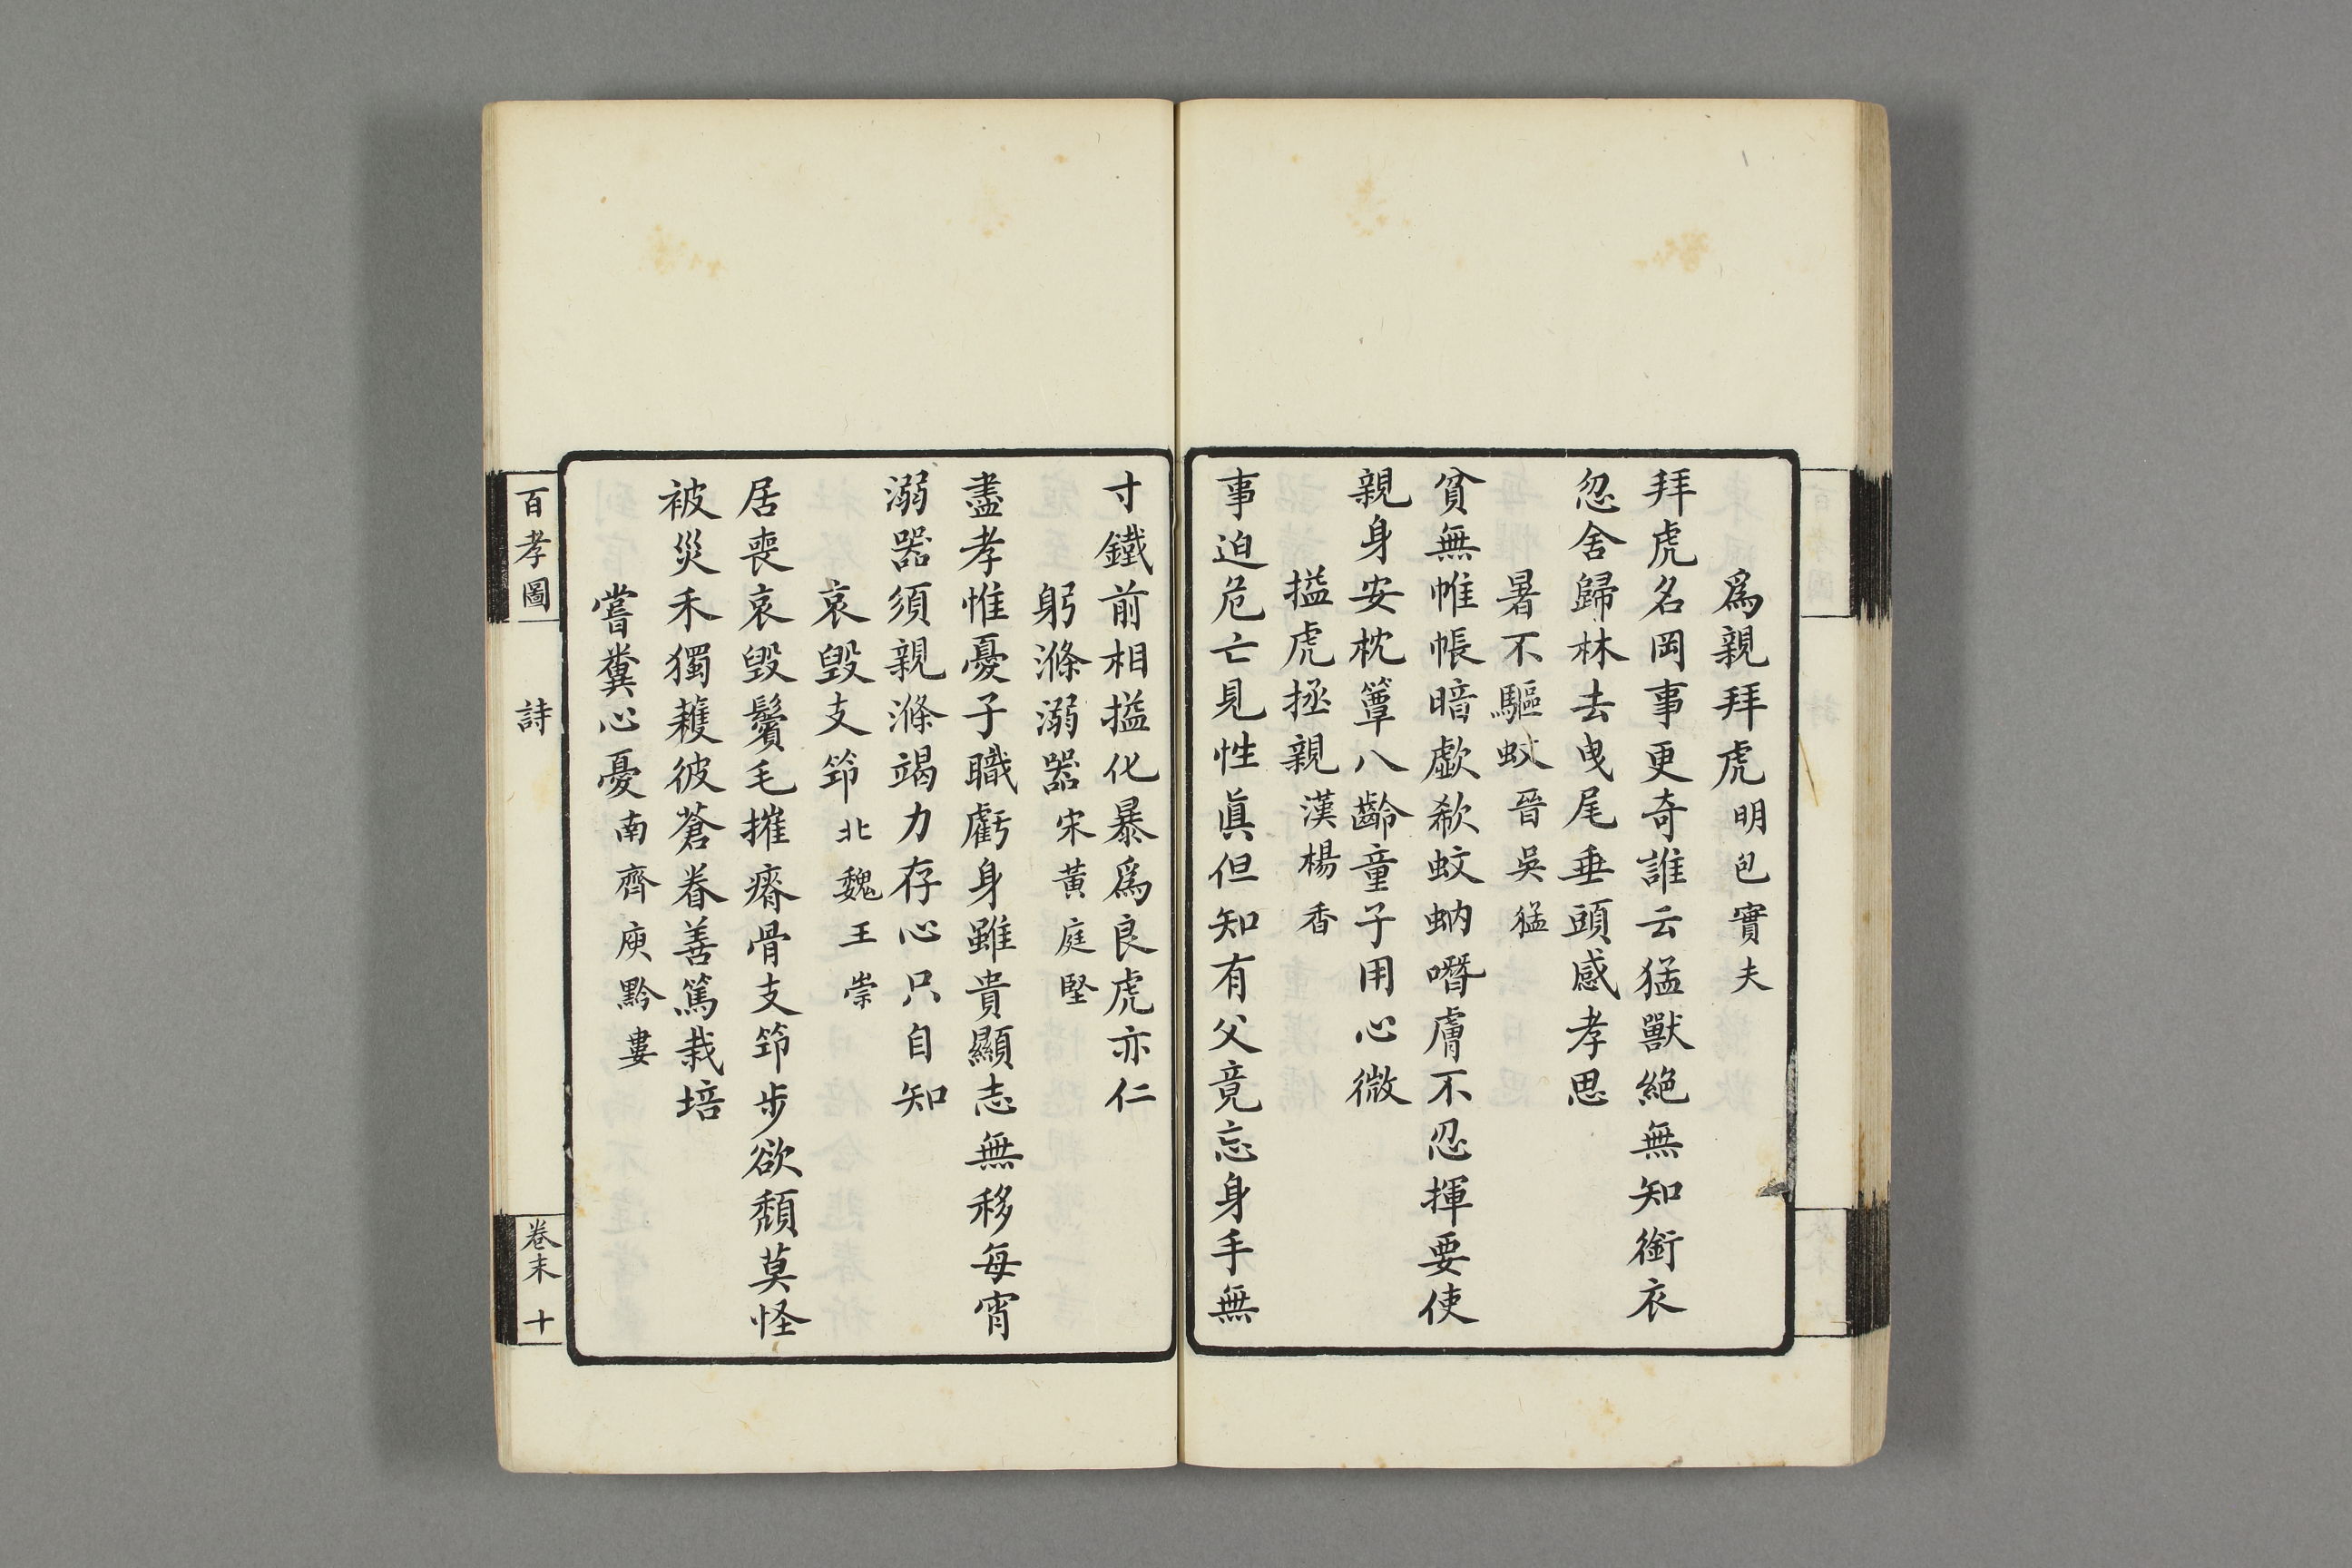 爲親拜虎明包實夫
拜虎名岡事更奇誰云猛獸絶無知銜衣
忽舍歸林去曳尾垂頭感孝思
暑不驅蚊晉吳猛
貧無帷帳暗歔欷蚊蚋噆膚不忍揮要使
親身安枕簟八齡童子用心微
搤虎拯親漢楊香
事迫危亡見性眞但知有父竟忘身手無
寸鐵前相搤化暴爲良虎亦仁
躬滌溺器宋黃庭堅
盡孝惟憂子職虧身雖貴顯志無移每宵
溺器須親滌竭力存心只自知
哀毀支節北魏王崇
居喪哀毀鬢毛摧瘠骨支節步欲頹莫怪
被災禾獨穫彼蒼眷善篤栽培
嘗糞心憂南齊庾黔婁
百孝圖 詩 卷末 十